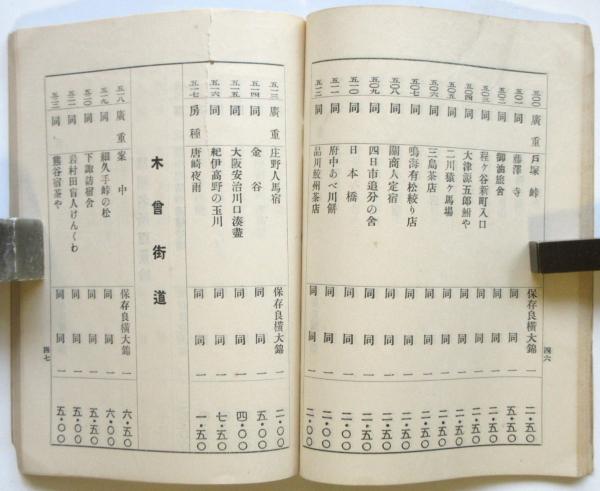 五〇〇 廣重 戸塚峠 保存良横大錦 一 二・五〇
五〇一 同 藤澤寺 同 同 一 五・五〇
五〇二 同 御油旅舎 同 同 一
五〇三 同 程ヶ谷新町入口 同 同 一
五〇四 同 大津源五郎鮒や 同 同 一
五〇五 同 二川猿ヶ馬場 同 同 一
五〇六 同 三島茶店 同 同 一
五〇七 同 鳴海有松絞り店 同 同 一
五〇八 同 關商人定宿 同 同 一
五〇九 同 四日市追分の舎 同 同 一 二・五〇
五一〇 同 日本橋 同 同 一
五一一 同 府中あべ川餅 同 同 一 二・〇〇
五一二 同 品川鮫州茶店 同 同 一 二・〇〇
四六
五一三 同 庄野人馬宿 保存良横大錦 一 二・〇〇
五一四 同 金谷 同 同 一 五・〇〇
五一五 同 大阪安治川口湊蓋 同 同 一 四・〇〇
五一六 同 紀伊高野の玉川 同 同 一 七・五〇
五一七 房種 唐崎夜雨 同 同 一 一・五〇
木曾街道
五一八 廣重 案中 保存良横大錦 一 六・五〇
五一九 同 細久手峠の松 同 同 一 六・〇〇
五二〇 同 下諏訪宿舎 同 同 一 五・五〇
五二一 同 岩村田盲人けんくわ 同 同 一 五・〇〇
五二二 同 熊谷宿茶や 同 同 一 五・〇〇
四七